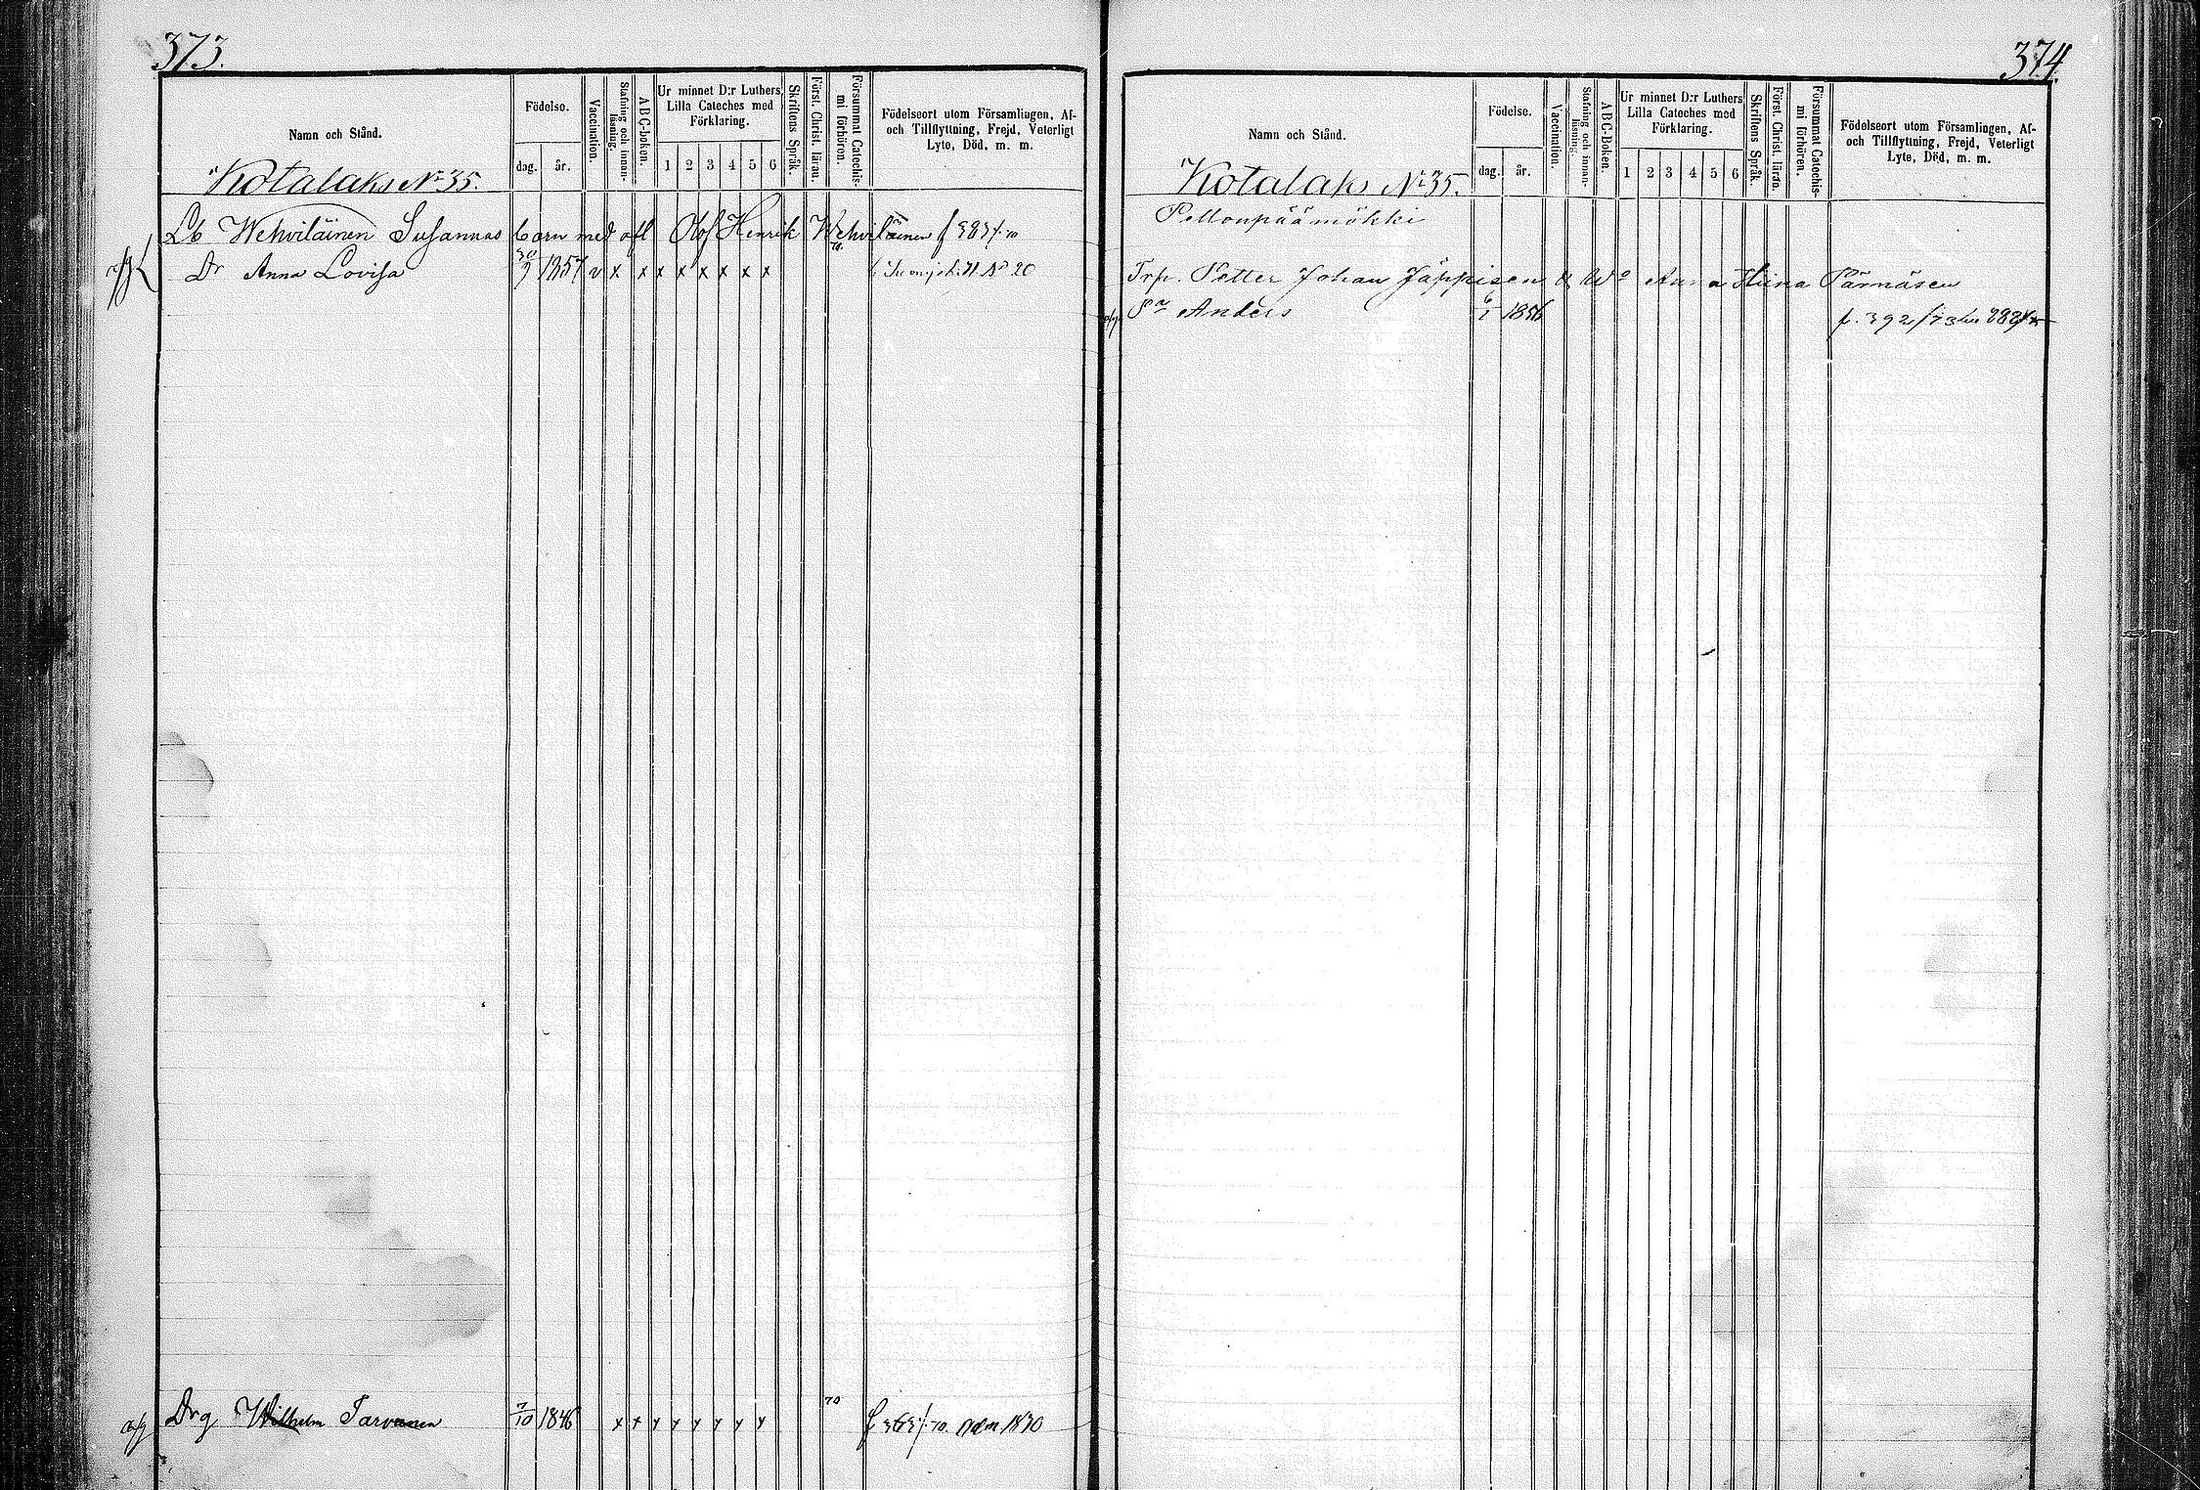 373.
Namn och Stånd.
Födelse.
dag. år.
Vaccination.
Stafning och innan-läsning.
ABC-boken.
Ur minnet D:r Luthers
Lilla Cateches med
Förklaring.
1 2 3 4 5 6
Skriftens Språk.
Först. Christ. läran.
Försummat Catechis-
mi förhören.
Födelseort utom Församlingen, Af-
och Tillflyttning, Frejd, Veterligt
Lyte, Död, m. m.
Kotalaks No 35.
Lb Wehviläinen Susannas barn med afl Olof Henrik Wehviläinen
Dr Anna Lovisa 30/9 1857 v x x x x x x x x No 20
Drg Wilhelm Tarvanen 7/10 1846 x x x x x x x x 70
374.
Namn och Stånd.
Födelse.
dag. år.
Vaccination.
Stafning och innan-läsning.
ABC-Boken.
Ur minnet D:r Luthers
Lilla Cateches med
Förklaring.
1 2 3 4 5 6
Skriftens Språk.
Först. Christ. lärdn.
Försummat Catechis-
mi förhören.
Födelseort utom Församlingen, Af-
och Tillflyttning, Frejd, Veterligt
Lyte, Död, m. m.
Kotalaks No 35.
Pellonpäämökki
Trp. Petter Johan Jäppisen & Wo Anna Pärnäsen
Sn Anders 6/1 1856 f. 392/73